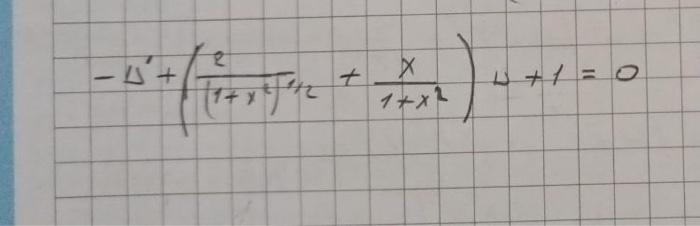 -u' + (2/(1+x²)^1/2 + x/(1+x²)) u + 1 = 0